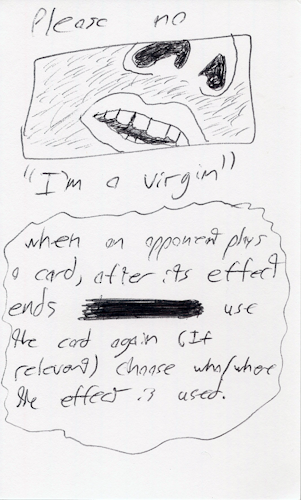 Please no
"I'm a virgin"
when an opponent plays
a card, after its effect
ends use
the card again (If
relevant) choose who/where
the effect is used.